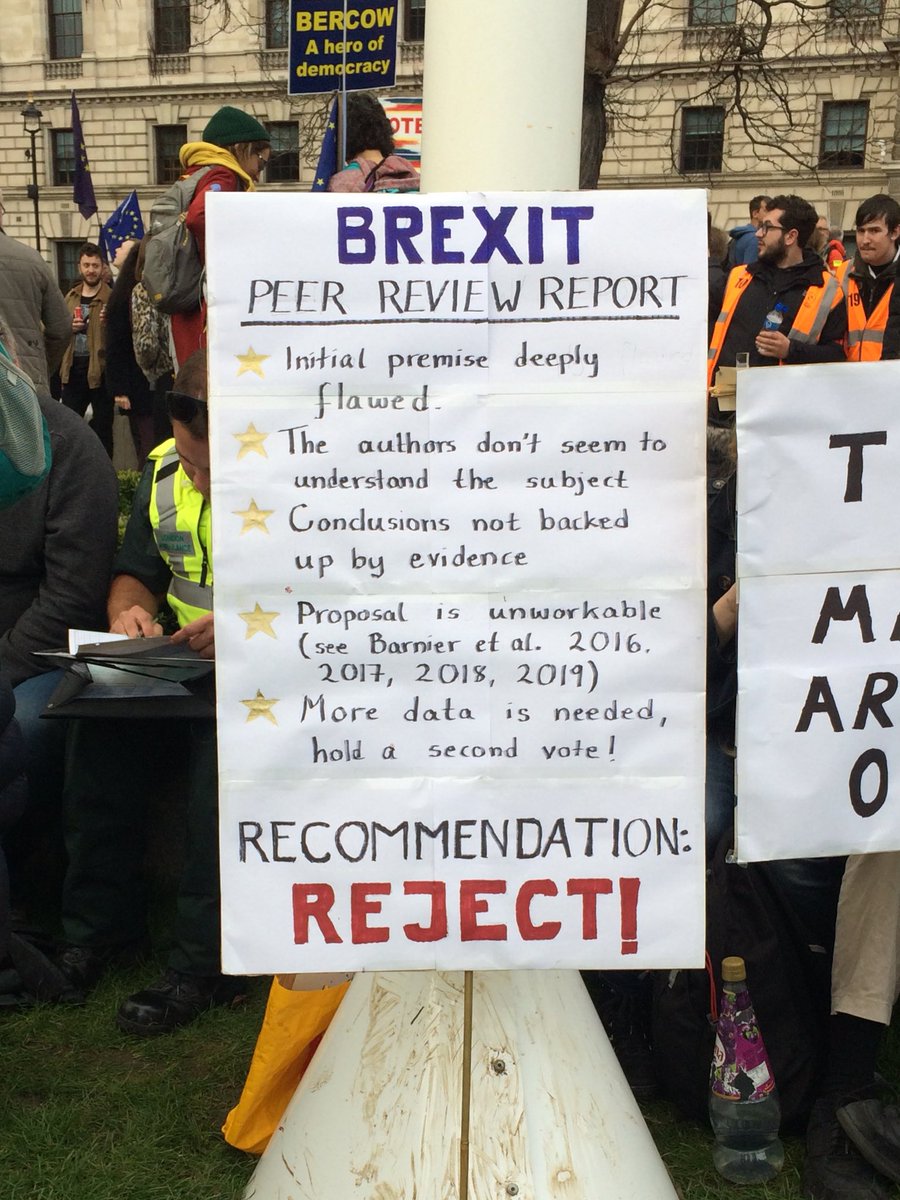 BERCOW
A hero of
democracy
OTE
BREXIT
PEER REVIEW REPORT
Initial premise deeply
flawed.
The authors don't seem to
understand the subject
Conclusions not backed
up by evidence
Proposal is unworkable
(see Barnier et al. 2016.
2017, 2018, 2019)
More data is needed,
hold a second vote!
RECOMMENDATION:
REJECT!
LONDON
T
MA
AR
O
19